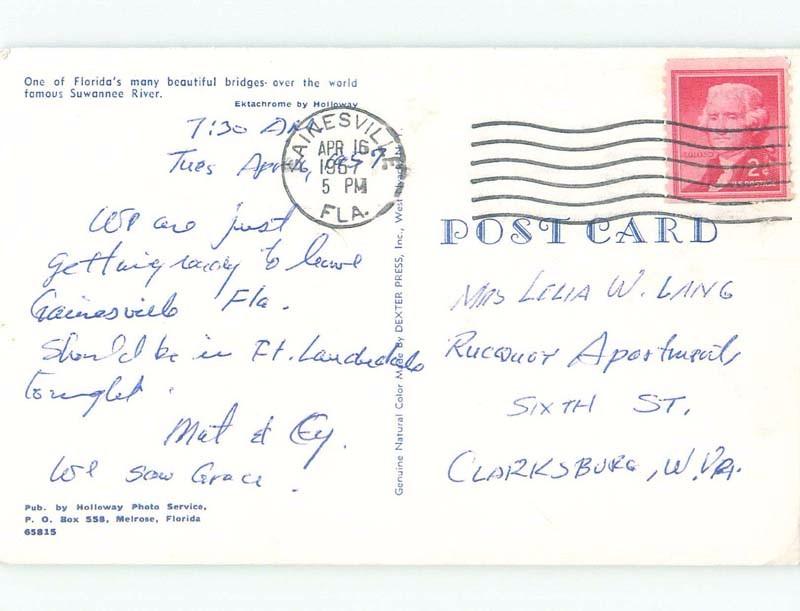 One of Florida's many beautiful bridges over the world
famous Suwannee River.
Ektachrome by Holloway
7:30 AM
Tues Apr 16, 1957
We are just
getting ready to leave
Gainesville Fla.
Should be in Ft. Lauderdale
tonight.
Mat & Cy.
We saw Grace.
Pub. by Holloway Photo Service,
P. O. Box 558, Melrose, Florida
65815
GAINESVILLE
APR 16
5 PM
FLA.
Genuine Natural Color Made By DEXTER PRESS, Inc., West
2¢
POST CARD
Mrs LELIA W. LANG
Apartment
SIXTH ST.
CLARKSBURG, W. VA.